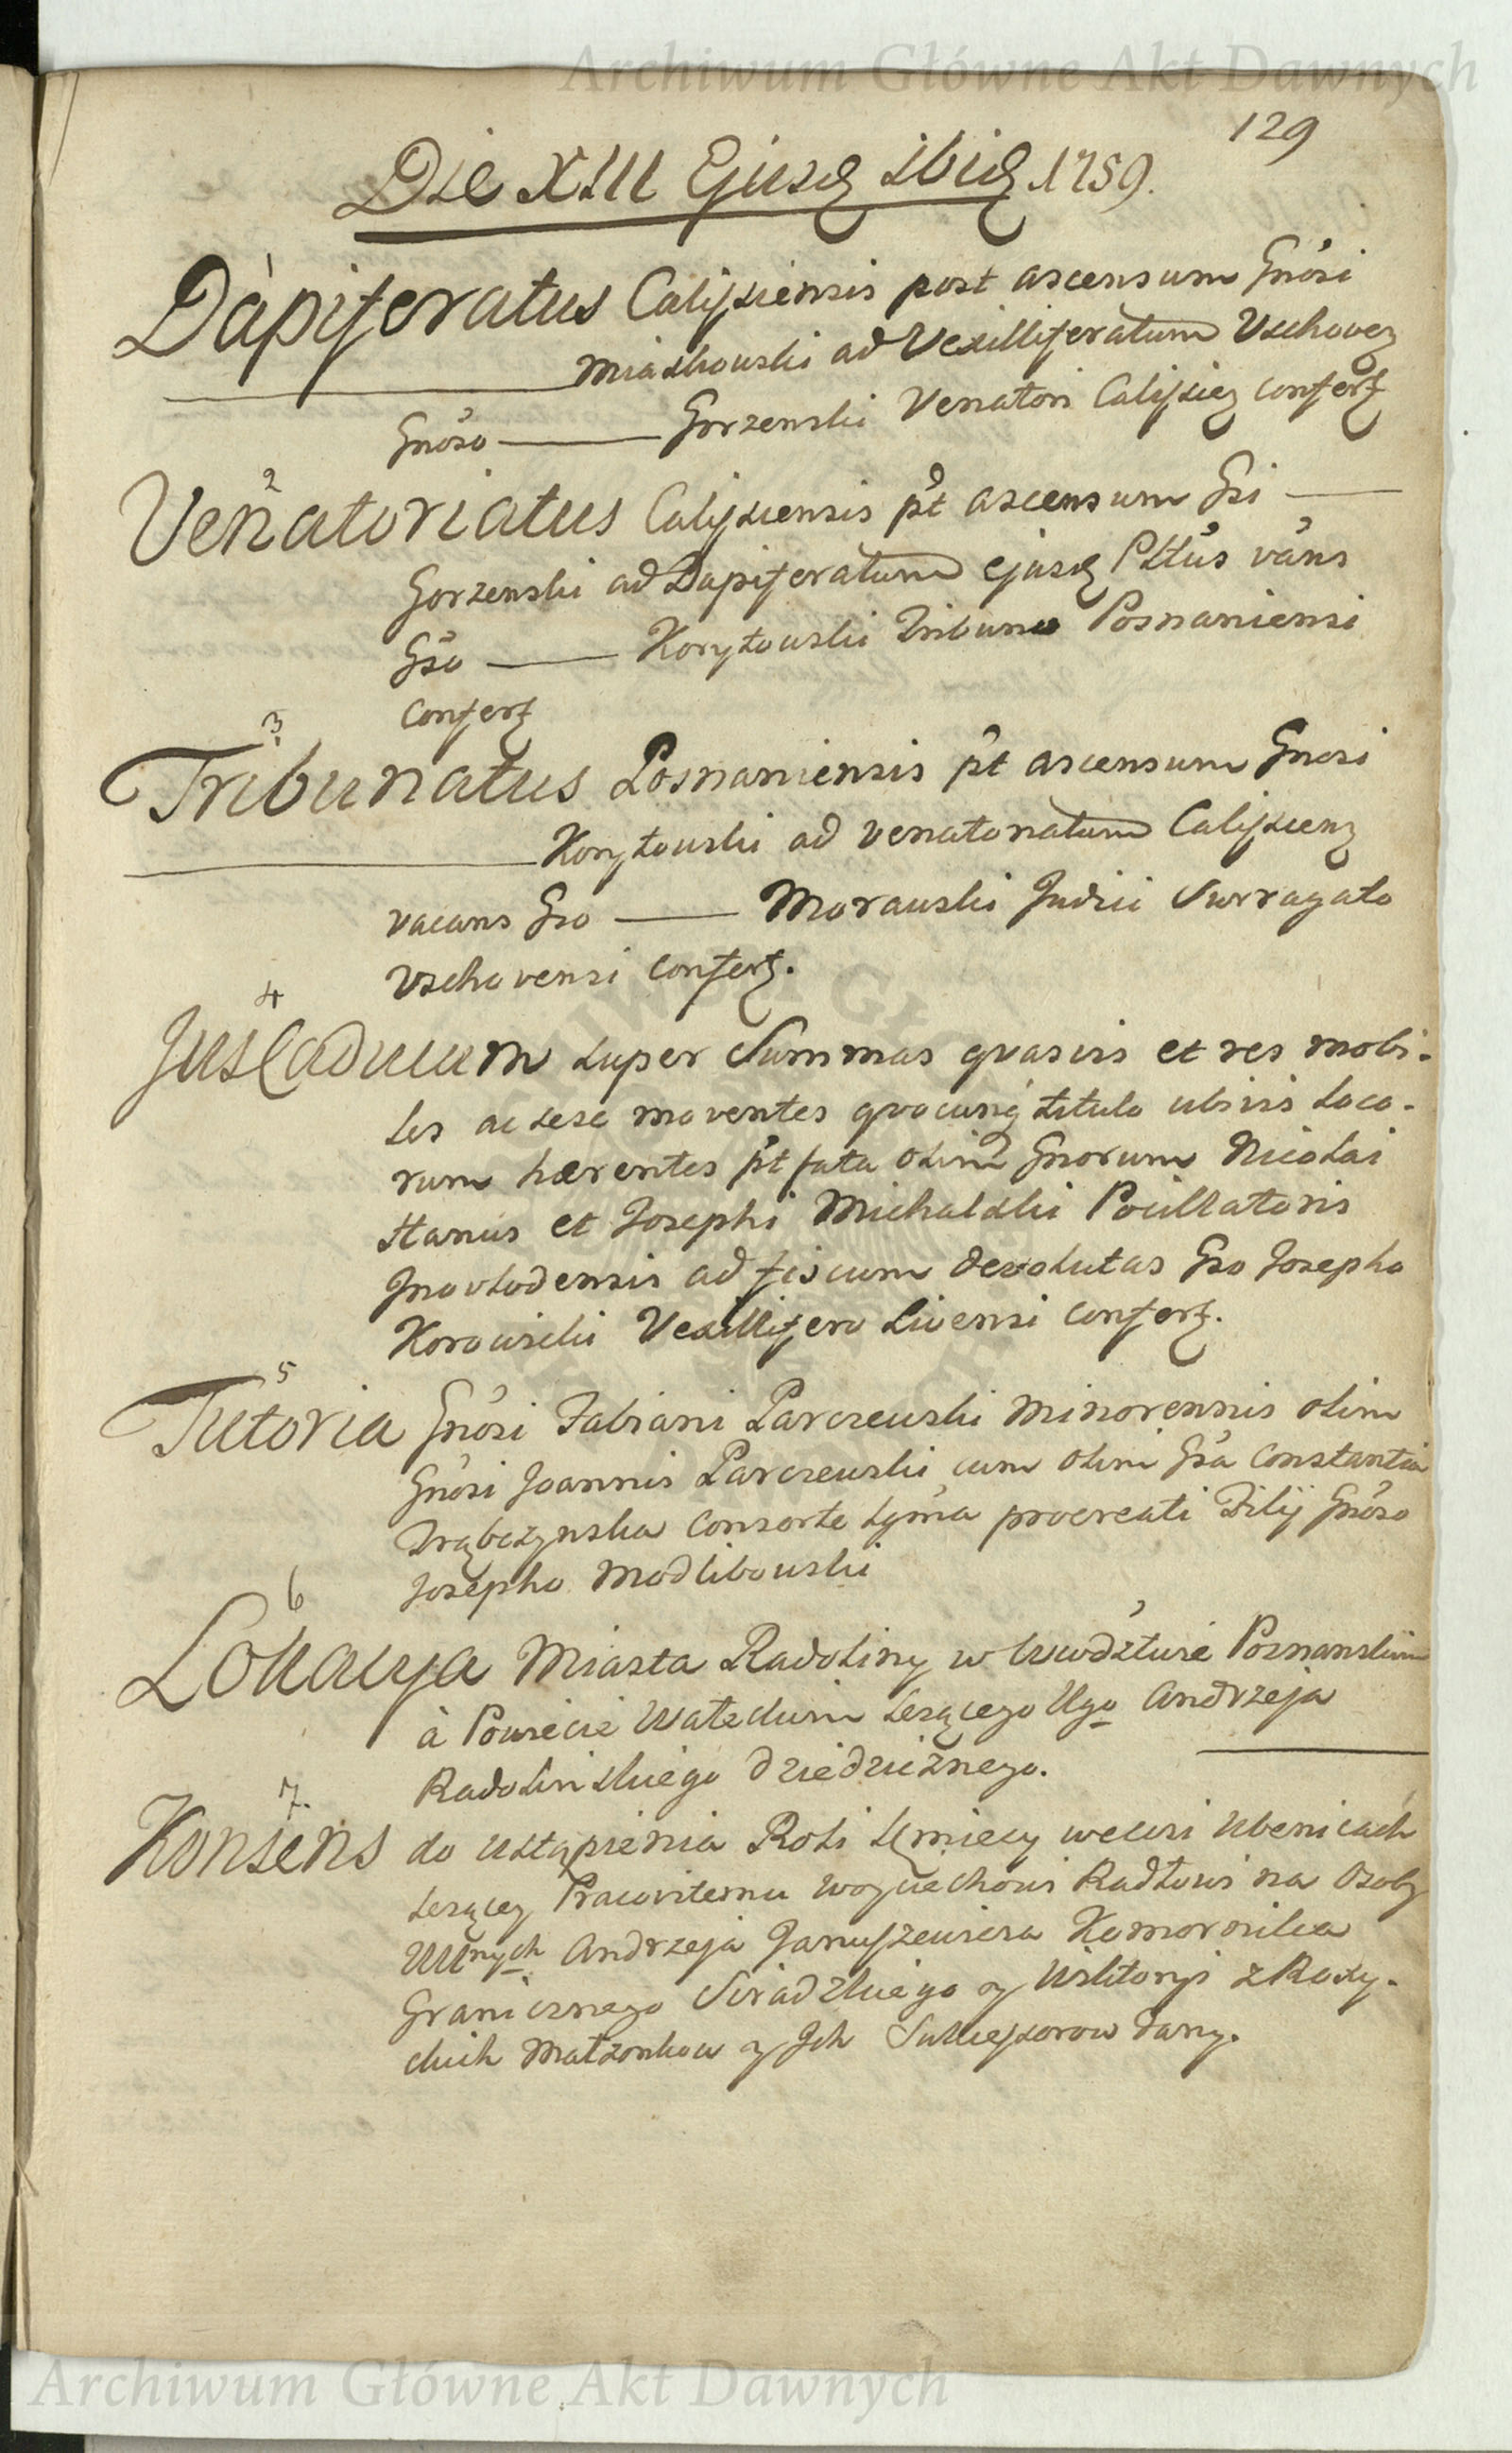 Archiwum Główne Akt Dawnych
129
Die XIII Ejusq ibiq 1759.
1
Dapiferatus Calissiensis post ascensum Gnosi
Miaskowski ad Vexilliferatum Vschoveq
Gnoso — Gorzenski Venatori Calissieq conferq
2
Venatoriatus Calissiensis pt ascensum Gsi —
Gorzenski ad Dapiferatum ejusq Pltus vans
Gso — Korytowski Tribuno Posnaniensi
conferq
3
Tribunatus Posnaniensis pt ascensum Gnosi
Korytowski ad venatoriatum Calissienq
vacans Gso — Morawski Judici Surrogato
Vschovensi conferq.
4
Jus Caducum super Summas qvasvis et res mobi-
les ac sese moventes qvocunq titulo ubivis loco-
rum hærentes pt fata olim Gnorum Nicolai
Hanus et Josephi Michalski Pocillatoris
Jnovlodensis ad fiscum devolutas Gso Josepho
Korowicki Vexillifero Livensi conferq.
5
Tutoria Gnosi Fabiani Parczewski minorennis olim
Gnosi Joannis Parczewski cum olim Gsa Constantia
Trąbczynska consorte lgma procreati Filij Gnoso
Josepho Modlibowski
6
Lokacya Miasta Radoliny w Wwodztwie Poznanskim
à Powiecie Wałeckim lezącego Ugo Andrzeja
Radolinskiego dziedzicznego.
7.
Konsens do ustąpienia Roli Kmiecy wewsi Ubenicach
lezącey Pracowitemu Woyciechowi Radłowi na Osoby
UUnych Andrzeja Januszewicza Komornika
Granicznego Siradzkiego y Wiktoryi z Rudy-
ckich Małzonkow y Jch Sukcessorow dany.
Archiwum Główne Akt Dawnych